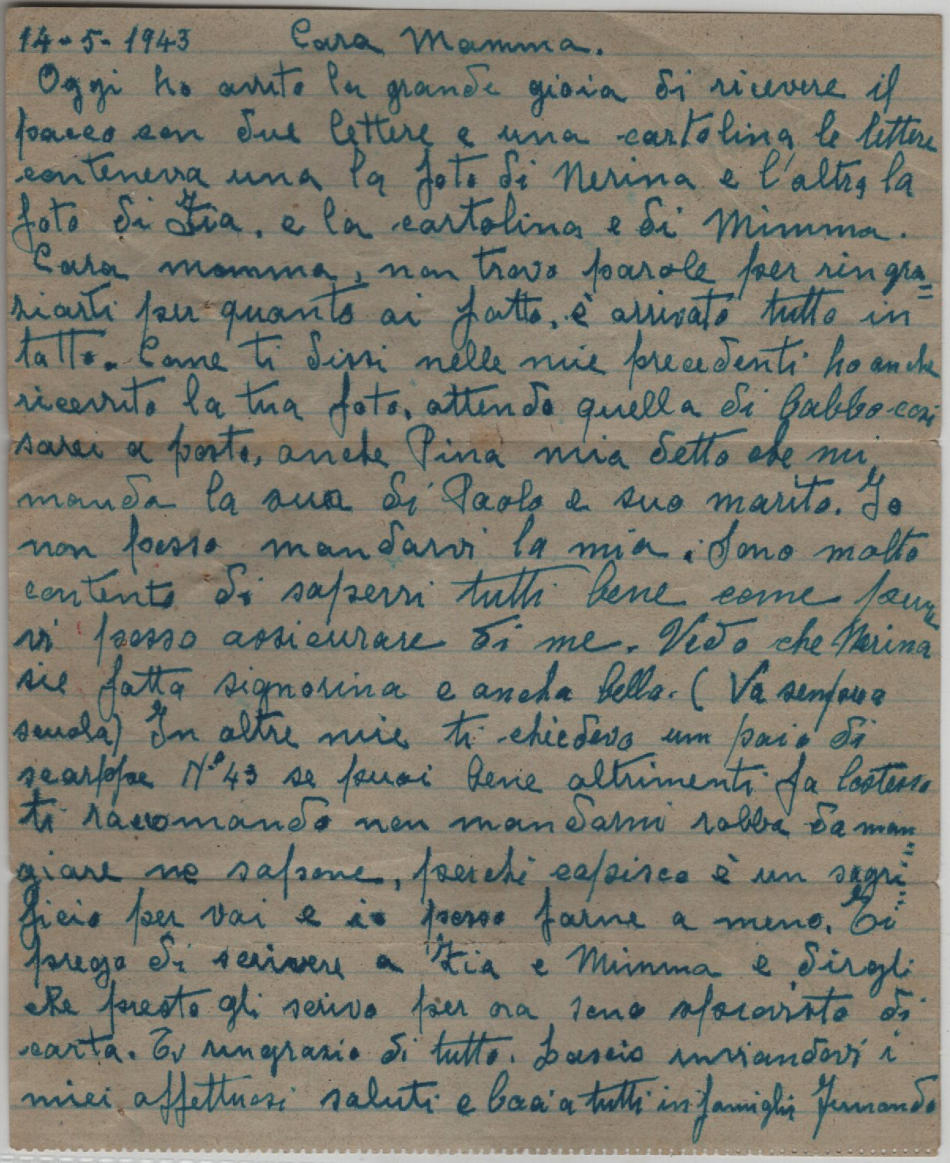 14-5-1943 Cara Mamma.
Oggi ho avuto la grande gioia di ricevere il
pacco con due lettere e una cartolina, le lettere
conteneva una la foto di Nerina e l'altra la
foto di Zia, e la cartolina e di Mimma.
Cara mamma, non trovo parole per ringra=
ziarti per quanto ai fatto, è arrivato tutto in
tatto. Come ti dissi nelle mie precedenti ho anche
ricevuto la tua foto, attendo quella di babbo cosi
sarei a posto, anche Pina mia detto che mi
manda la sua di Paolo e suo marito. Io
non posso mandarvi la mia. Sono molto
contento di sapervi tutti bene come pure
vi posso assicurare di me. Vedo che Nerina
sie fatta signorina e ancha bella. (Va sempre a
scuola) In altre mie ti chiedevo um paio di
scarppe N.º 43 se puoi bene altrimenti fa lostesso
ti racomando non mandarmi robba da man
giare ne sapone, perchè capisco è un sagri
ficio per voi e io posso farne a meno. Ti
prego di scrivere a Zia e Mimma e dirgli
che presto gli scrivo per ora sono sprovisto di
carta. Ti ringrazio di tutto. Lascio inviandovi i
miei affettuosi saluti e baci a tutti in famiglia Fernando